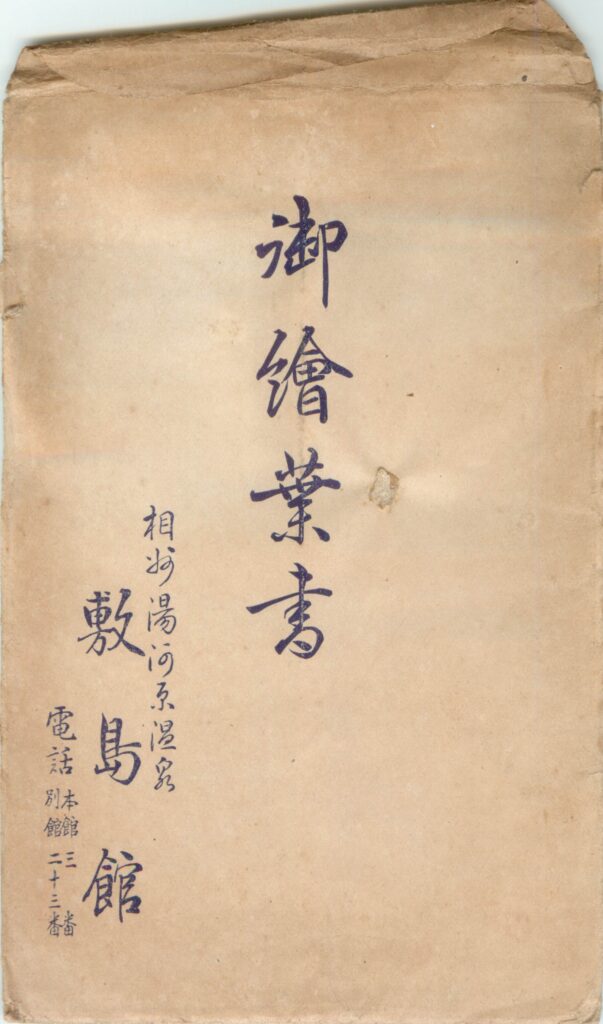 御繪葉書
相州湯河原温泉
敷島館
電話 本館 三番
別館 二十三番